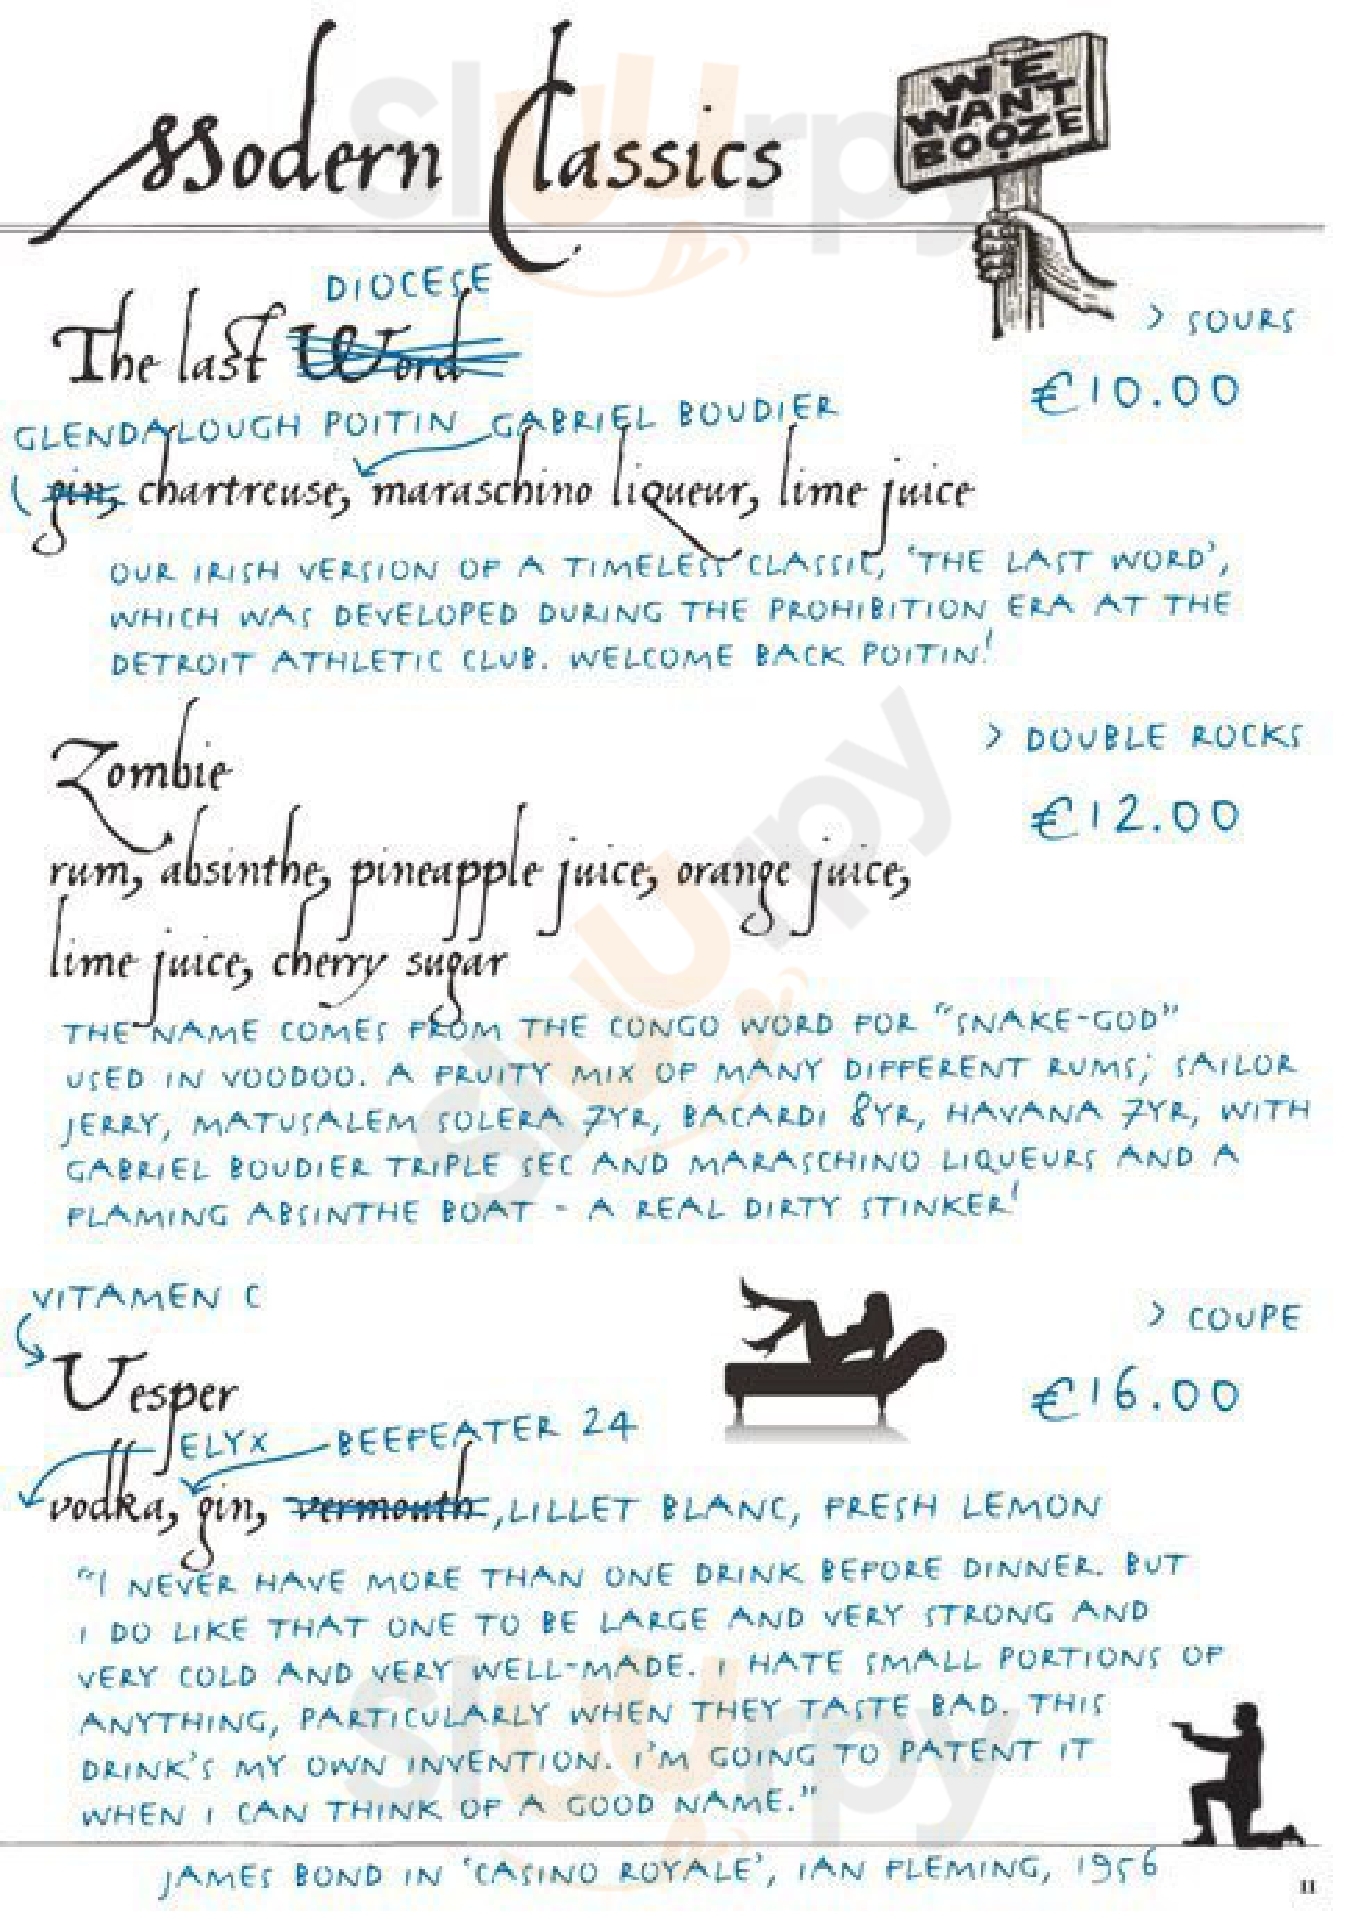 Modern Classics
WE
WANT
BOOZE
DIOCESE
The last Word
> SOURS
€10.00
GLENDALOUGH POITIN GABRIEL BOUDIER
gin, chartreuse, maraschino liqueur, lime juice
OUR IRISH VERSION OF A TIMELESS CLASSIC, 'THE LAST WORD',
WHICH WAS DEVELOPED DURING THE PROHIBITION ERA AT THE
DETROIT ATHLETIC CLUB. WELCOME BACK POITIN!
Zombie
> DOUBLE ROCKS
€12.00
rum, absinthe, pineapple juice, orange juice,
lime juice, cherry sugar
THE NAME COMES FROM THE CONGO WORD FOR "SNAKE-GOD"
USED IN VOODOO. A FRUITY MIX OF MANY DIFFERENT RUMS; SAILOR
JERRY, MATUSALEM SOLERA 7YR, BACARDI 8YR, HAVANA 7YR, WITH
GABRIEL BOUDIER TRIPLE SEC AND MARASCHINO LIQUEURS AND A
FLAMING ABSINTHE BOAT - A REAL DIRTY STINKER!
VITAMEN C
> COUPE
Vesper
€16.00
ELYX BEEFEATER 24
vodka, gin, vermouth, LILLET BLANC, FRESH LEMON
"I NEVER HAVE MORE THAN ONE DRINK BEFORE DINNER. BUT
I DO LIKE THAT ONE TO BE LARGE AND VERY STRONG AND
VERY COLD AND VERY WELL-MADE. I HATE SMALL PORTIONS OF
ANYTHING, PARTICULARLY WHEN THEY TASTE BAD. THIS
DRINK'S MY OWN INVENTION. I'M GOING TO PATENT IT
WHEN I CAN THINK OF A GOOD NAME."
JAMES BOND IN 'CASINO ROYALE', IAN FLEMING, 1956
11
Sluurpy
Sluurpy
Sluurpy